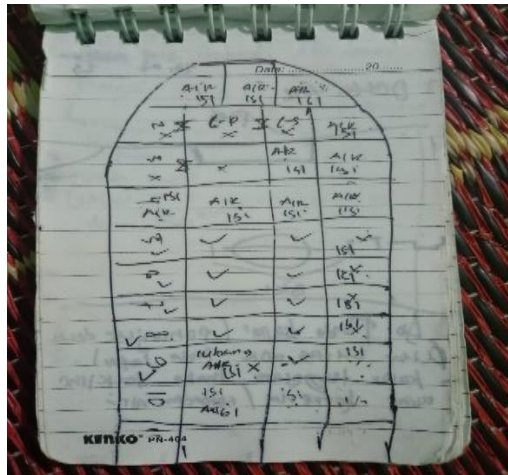 Date: 20
AIR AIR AIR
ISI ISI ISI
2 x C-P x C-S x AIR ISI
3 x x AIR ISI AIR ISI
4 ISI AIR AIR ISI AIR ISI AIR ISI
5 ✓ ✓ ✓ ISI
6 ✓ ✓ ✓
7 ✓ ✓ ✓ ISI
8 ✓ ✓ ✓ ISI
9 ✓ lubang AIR ISI x ✓ ISI
10 ISI ISI
KENKO PN-404